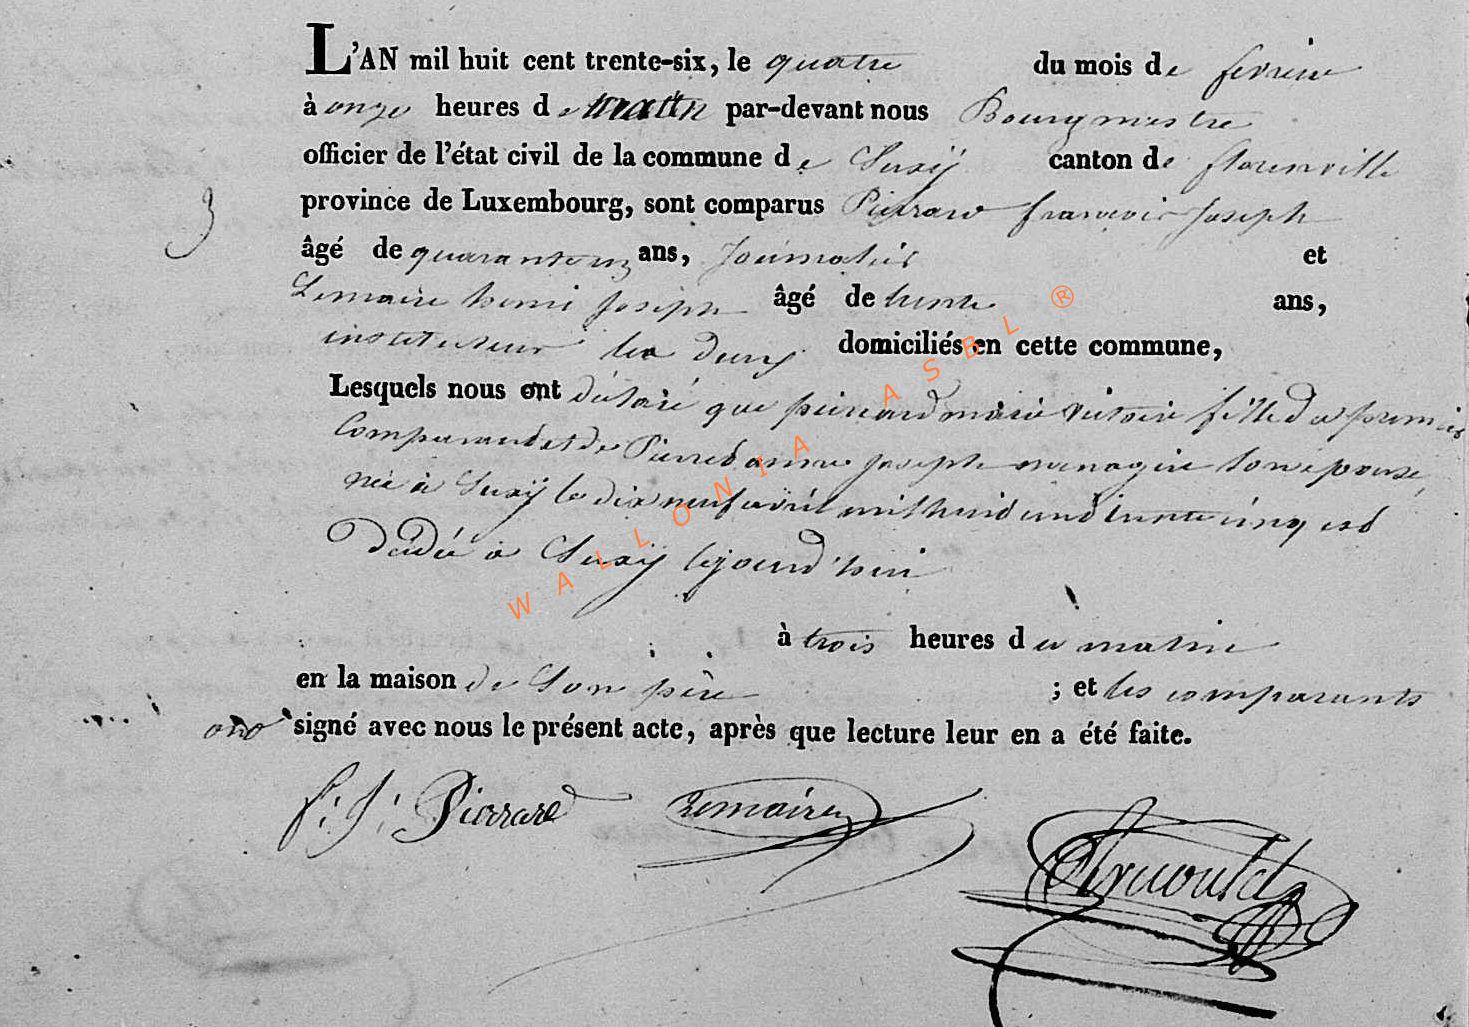 L'AN mil huit cent trente-six, le quatre du mois de fevrier
à onze heures de matin par-devant nous Bourgmestre
officier de l'état civil de la commune de Suxÿ canton de florenville
province de Luxembourg, sont comparus Pierrard françois Joseph
3
âgé de quarante ans, Journalier et
Lemaire henri Joseph âgé de trente ans,
instituteur les deux domiciliés en cette commune,
Lesquels nous ont déclaré que pierrard marie victoire fille du premier
Comparant et de Pierred anne Joseph menagère son epouse,
née à Suxÿ le dix neuf avril mil huid cend trente cinq est
décédée à Suxÿ cejourd'hui
à trois heures du matin
en la maison de Son père ; et les comparants
ont signé avec nous le présent acte, après que lecture leur en a été faite.
f: J: Pierrard Lemaire
Arnould
WALLONIA ASBL ®